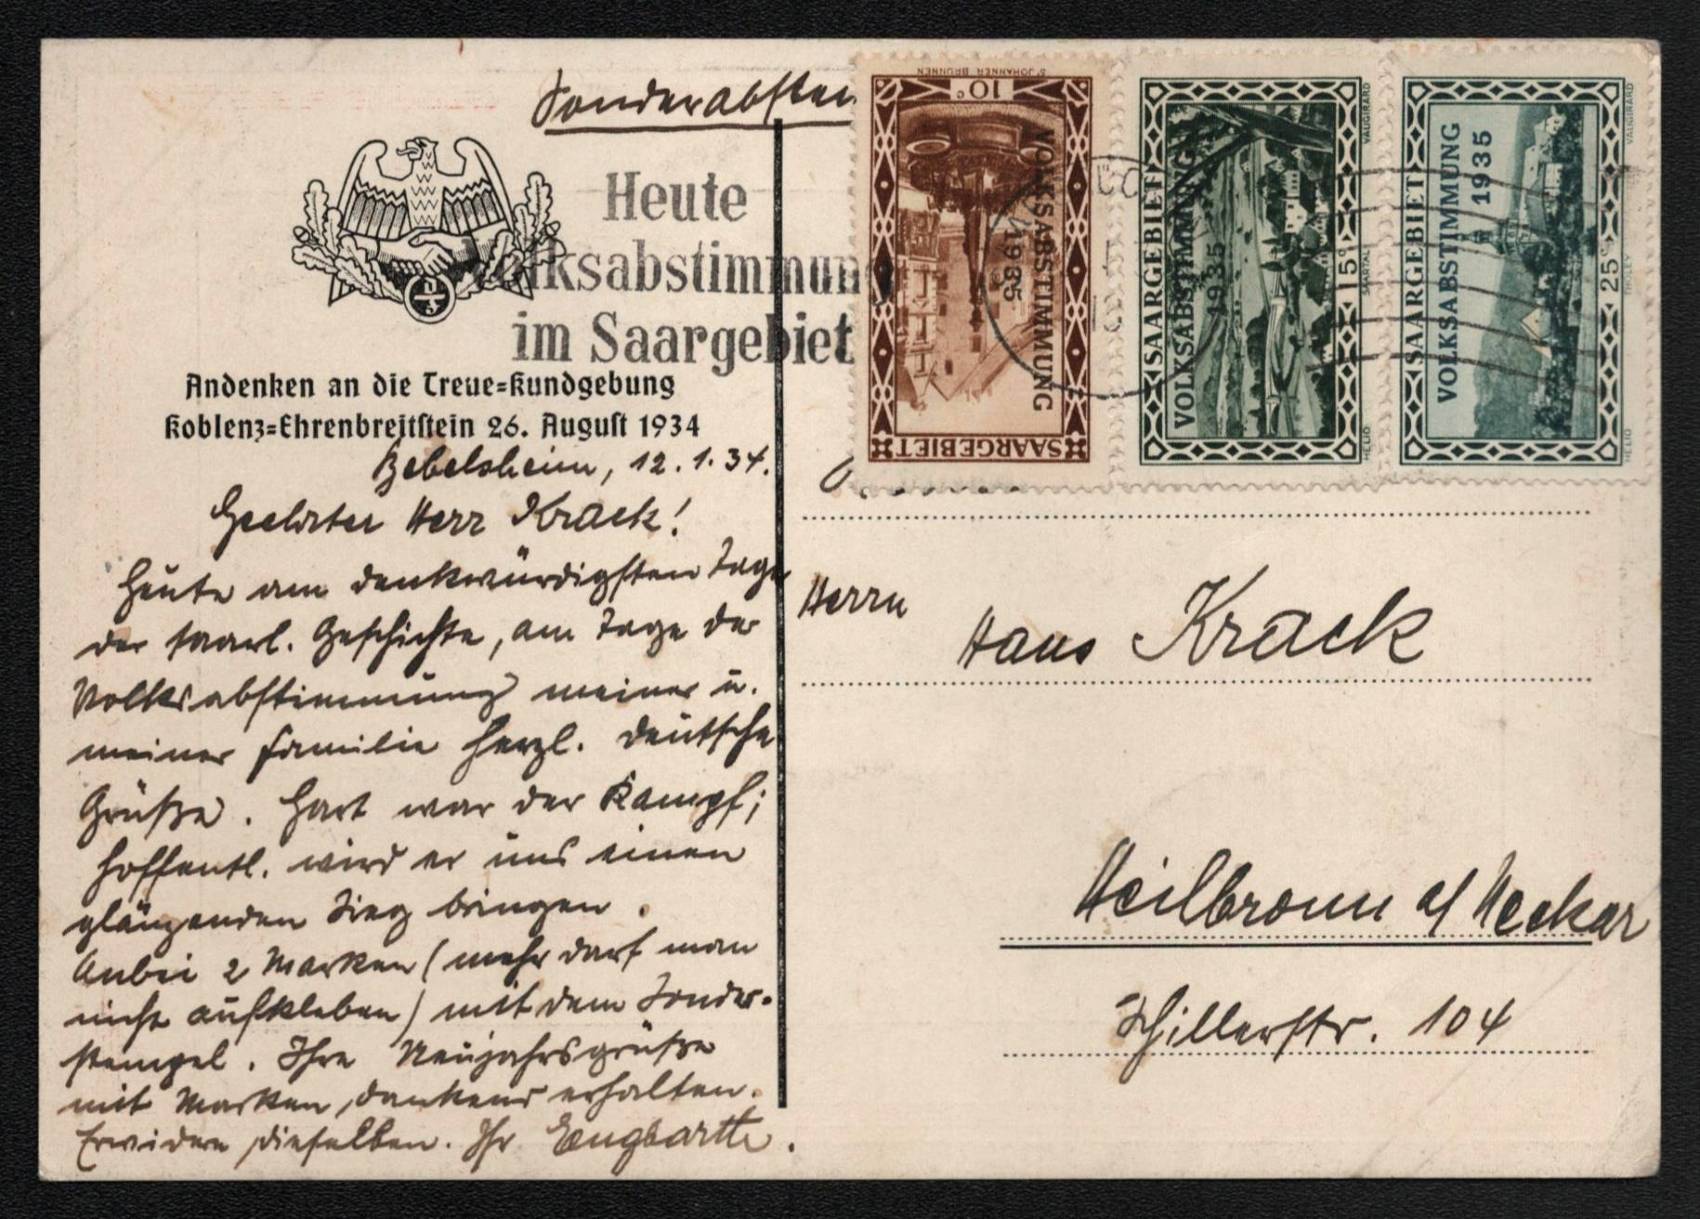 Sonderabstem
Heute
Volksabstimmung
im Saargebiet
Andenken an die Treue=Kundgebung
Koblenz=Ehrenbreitstein 26. August 1934
Bebelsheim, 12.1.34.
Geehrter Herr Krack!
Heute am denkwürdigsten Tage
der saarl. Geschichte, am Tage der
Volksabstimmung meiner u.
meiner Familie herzl. deutsche
Grüße. Hart war der Kampf;
hoffentl. wird er uns einen
glänzenden Sieg bringen.
Anbei 2 Marken (mehr darf man
nicht aufkleben) mit dem Sonder-
stempel. Ihre Neujahrsgrüße
mit Marken dankend erhalten.
Erwidere dieselben. Ihr Engbarth.
ST JOHANNER BRUNNEN
10 c
VOLKSABSTIMMUNG
1935
SAARGEBIET
SAARGEBIET
VOLKSABSTIMMUNG
1935
15 c
VAUGIRARD
SAARTAL
HELIO
SAARGEBIET
VOLKSABSTIMMUNG
1935
25 c
VAUGIRARD
THOLEY
HELIO
Herrn
Hans Krack
Heilbronn a/Neckar
Schillerstr. 104